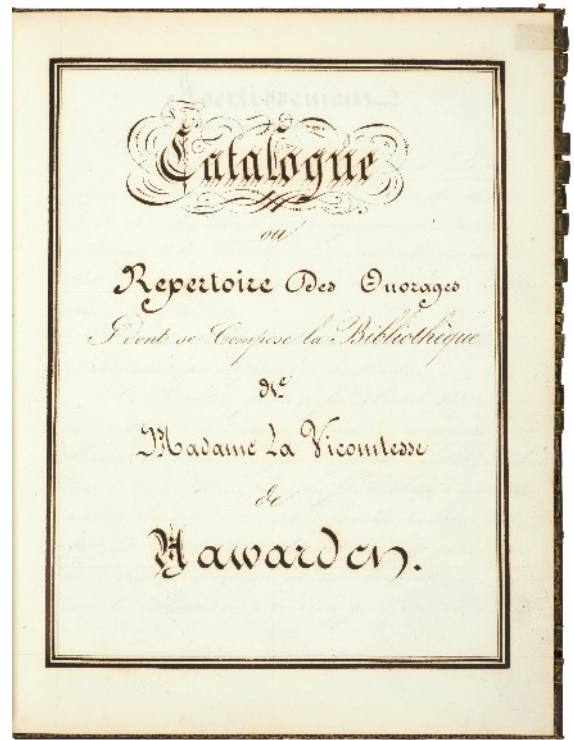 Catalogue
ou
Repertoire Des Ouvrages
dont se Compose la Bibliothèque
de
Madame La Vicomtesse
de
Hawarden.